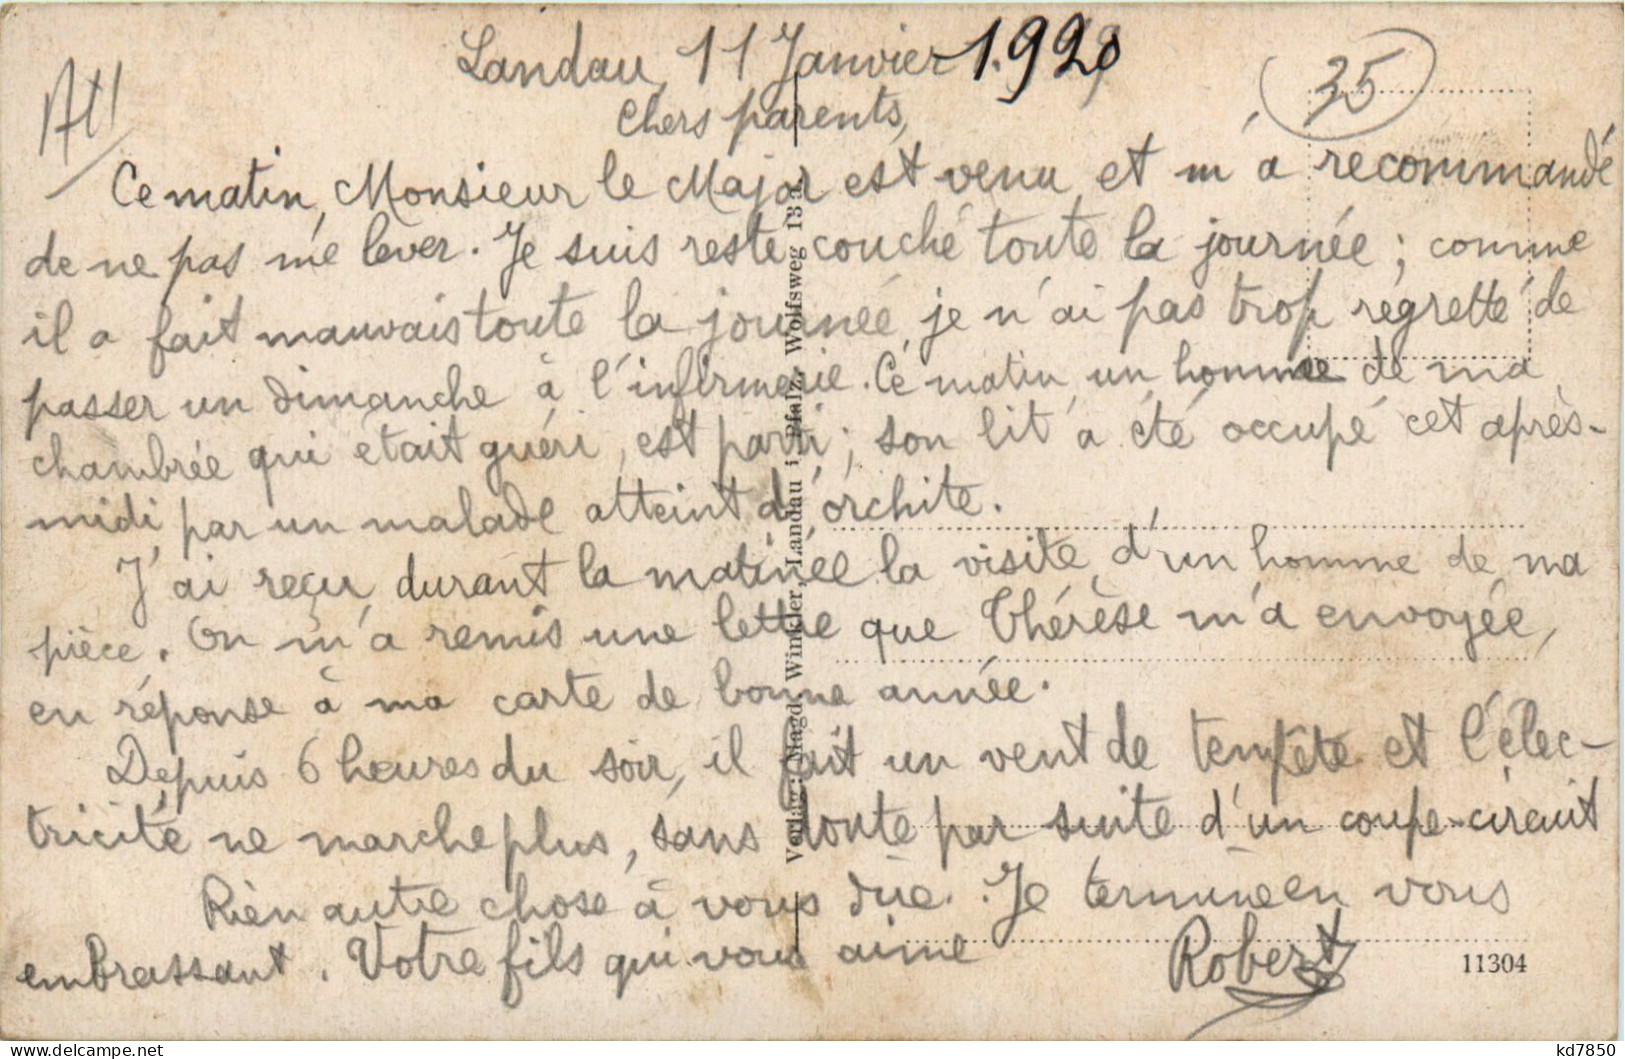 Landau, 11 Janvier 1920
35
Chers parents,
Ce matin, Monsieur le Major est venu et m'a recommandé
de ne pas me lever. Je suis resté couché toute la journée; comme
il a fait mauvais toute la journée, je n'ai pas trop régretté de
passer un dimanche à l'infirmerie. Ce matin, un homme de ma
chambrée qui était guéri, est parti; son lit a été occupé cet après-
midi par un malade atteint d'orchite.
J'ai reçu durant la matinée la visite d'un homme de ma
pièce. On m'a remis une lettre que Thérèse m'a envoyée,
en réponse à ma carte de bonne année.
Depuis 6 heures du soir, il fait un vent de tempête et l'élec-
tricité ne marche plus, sans doute par suite d'un coupe-circuit
Rien autre chose à vous dire. Je termine en vous
embrassant. Votre fils qui vous aime
Robert
Verlag: Magd. Winkler, Landau i. Pfalz, Wolfsweg 13a.
11304
kd7850